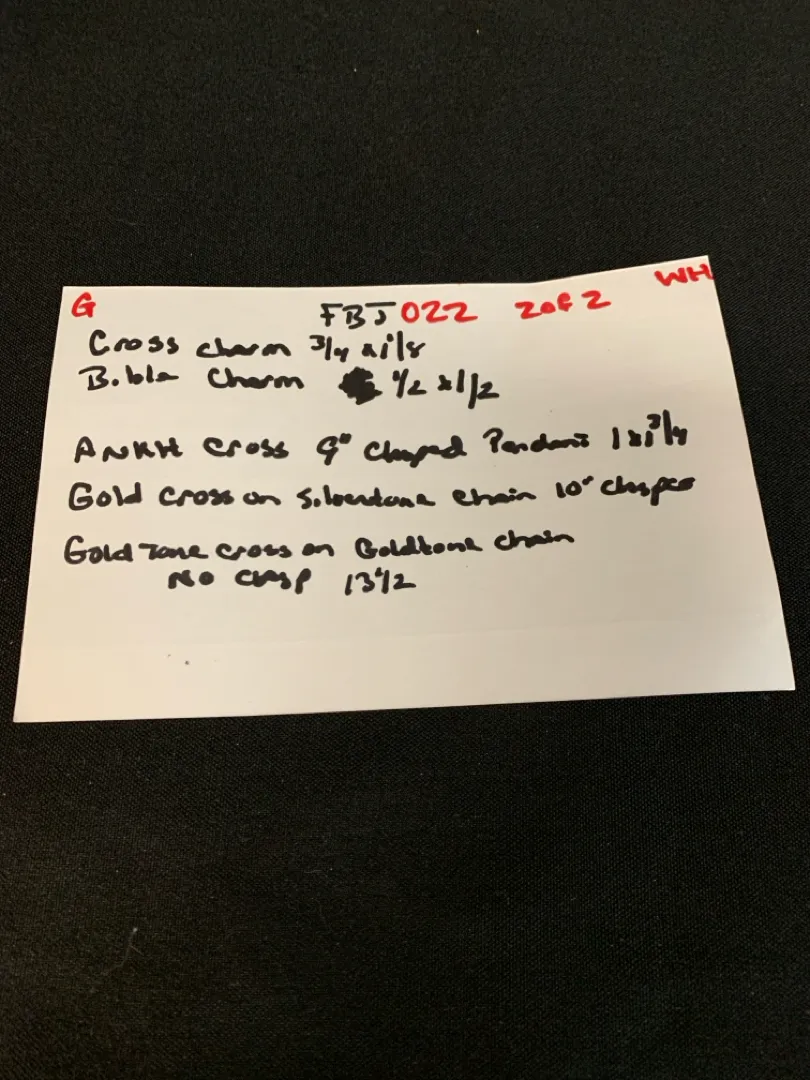 G FBJ 022 2 of 2 WH
Cross charm 3/4 x 1 1/8
Bible Charm 1/2 x 1/2
ANKH Cross 9" clasped Pendant 1 x 1 3/4
Gold Cross on Silvertone chain 10" clasped
Gold Tone cross on Goldtone chain
No clasp 13 1/2